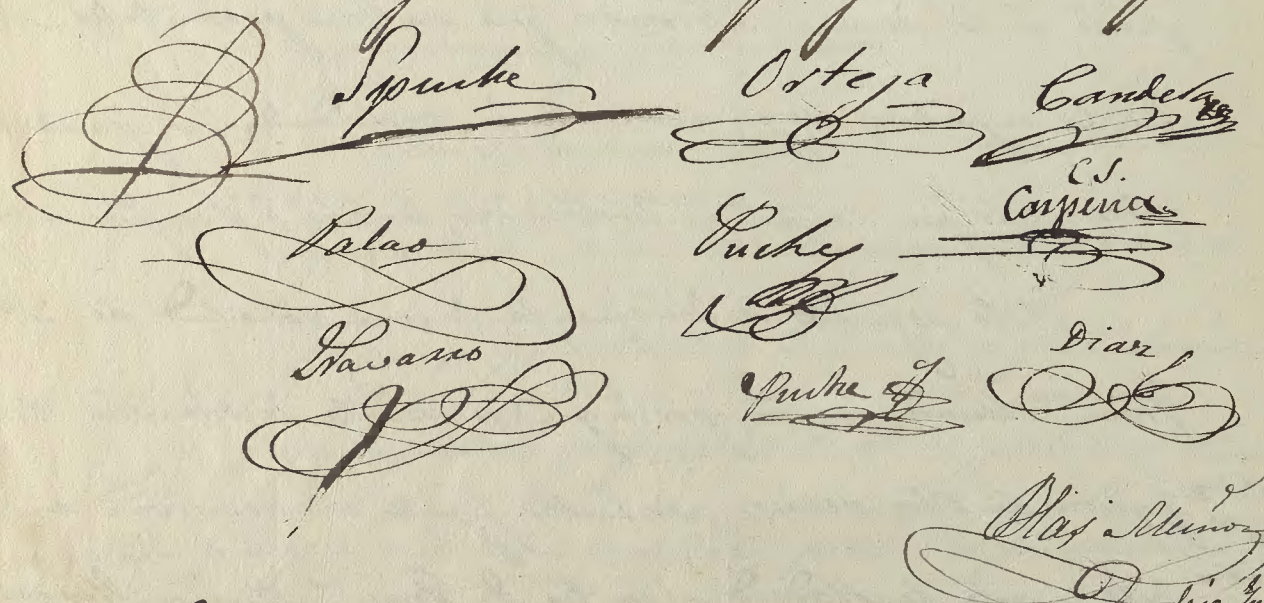 Spuche Ortega Candela
C. S.
Carpena
Palao Puche
Navarro Diaz
Puche
Blas Muñoz